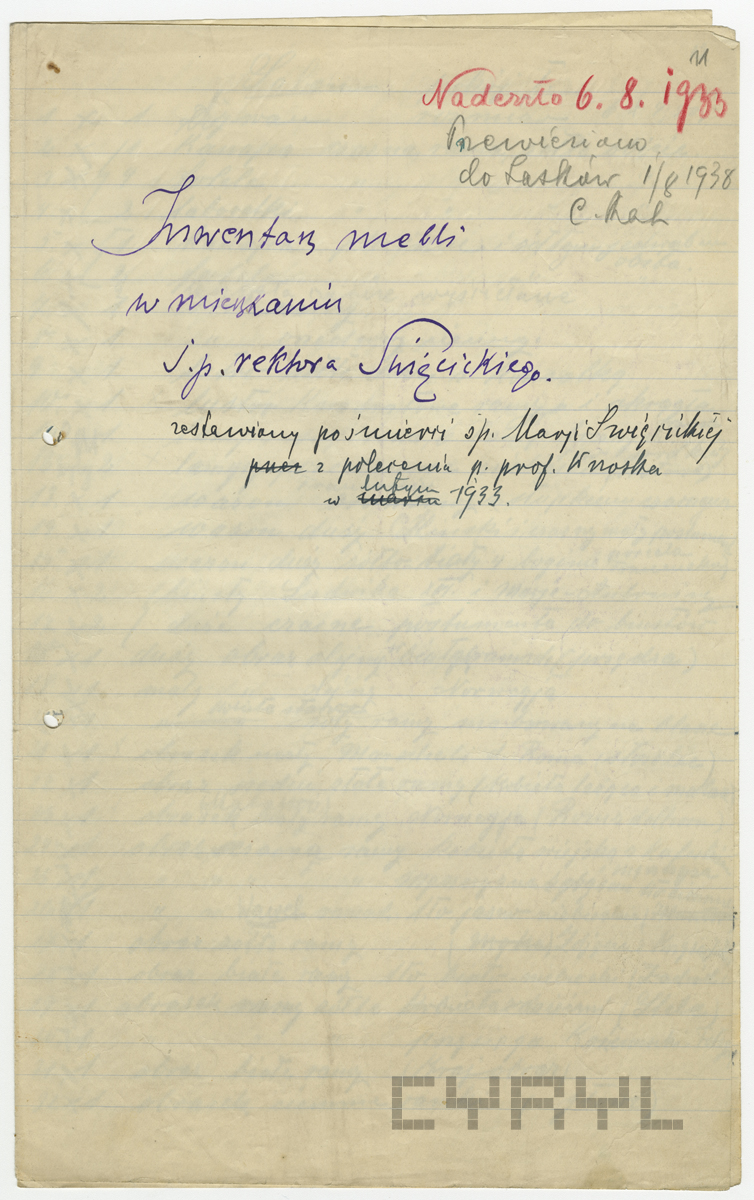 11
Nadeszło 6. 8. 1933
Przewieziono
do Lasków 1/8 1938
C. Rak
Inwentarz mebli
w mieszkaniu
ś. p. rektora Święcickiego.
zestawiony pośmierci śp. Marji Święcickiej
przez z polecenia p. prof. Knoska
lutym
w marcu 1933.
CYRYL